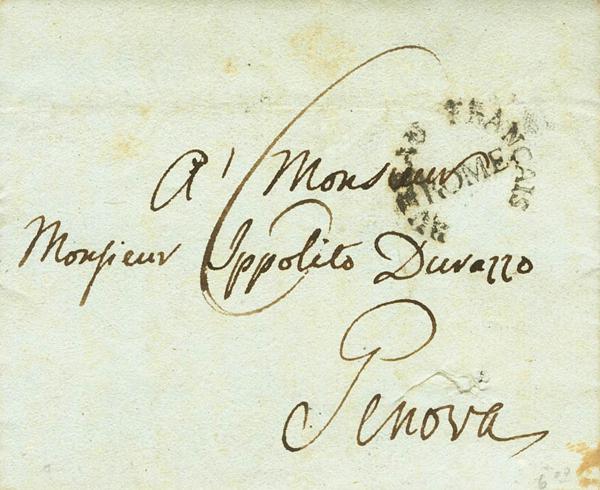 A' Monsieur
Monsieur Ippolito Durazzo
Genova
FRANÇAIS
ROME
6